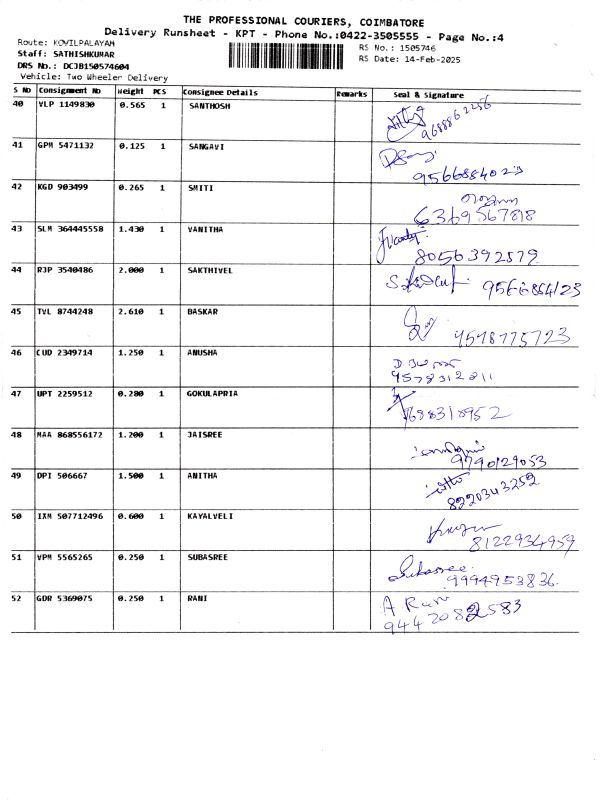 THE PROFESSIONAL COURIERS, COIMBATORE
Delivery Runsheet - KPT - Phone No.:0422-3505555 - Page No.:4
Route: KOVILPALAYAM
RS No.: 1505746
Staff: SATHISHKUMAR
RS Date: 14-Feb-2025
DRS No.: DCJB150574604
Vehicle: Two Wheeler Delivery
S No Consignment No Weight PCS Consignee Details Remarks Seal & Signature
40 VLP 1149830 0.565 1 SANTHOSH
9688862256
41 GPM 5471132 0.125 1 SANGAVI
9566884023
42 KGD 903499 0.265 1 SMITI
6369567818
43 SLM 364445558 1.430 1 VANITHA
8056392579
44 RJP 3540486 2.000 1 SAKTHIVEL
9566864123
45 TVL 8744248 2.610 1 BASKAR
9578775723
46 CUD 2349714 1.250 1 ANUSHA
9578312811
47 UPT 2259512 0.280 1 GOKULAPRIA
48 MAA 868556172 1.200 1 JAISREE
9790129053
49 DPI 506667 1.500 1 ANITHA
8220343252
50 IXM 507712496 0.600 1 KAYALVELI
8122934959
51 VPM 5565265 0.250 1 SUBASREE
Subasree
9994953836
52 GDR 5369075 0.250 1 RANI
A Rani
9442082583